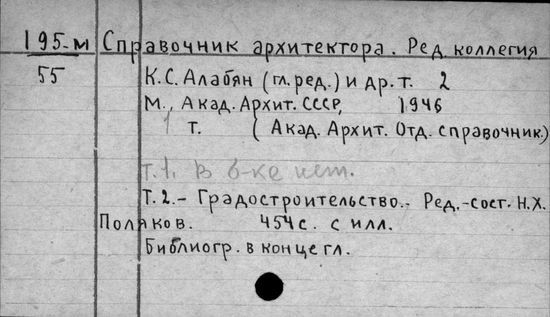 195-м Справочник архитектора. Ред. коллегия
55 К.С. Алабян (гл. ред.) и др. т. 2
М., Акад. Архит. СССР, 1946
1 т. (Акад. Архит. Отд. справочник.)
т.1. в б-ке нет.
Т.2.- Градостроительство.- Ред.-сост. Н.Х.
Поляков. 454с. с илл.
Библиогр. в конце гл.